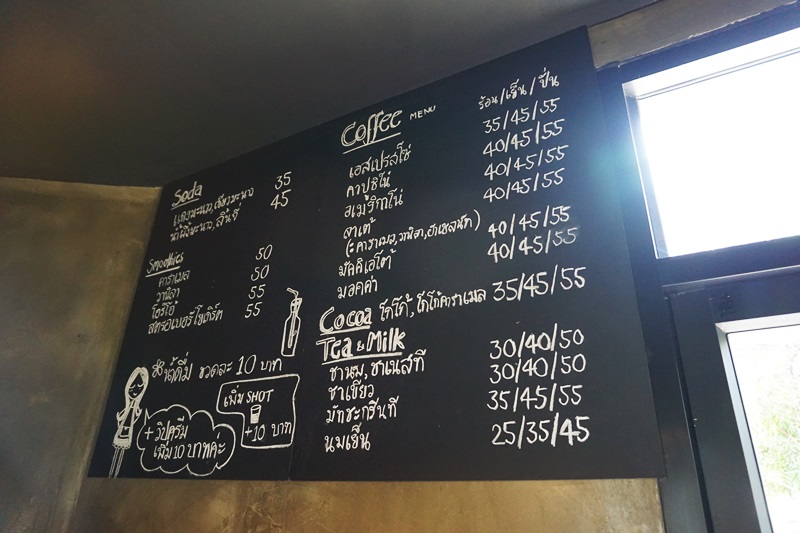 Soda
แดงมะนาว,เขียวมะนาว 35
น้ำผึ้งมะนาว,ลิ้นจี่ 45
Smoothies
คาราเมล 50
วานิลา 50
โอริโอ้ 55
สตรอเบอรี่โยเกิร์ต 55
น้ำดื่ม ขวดละ 10 บาท
เพิ่ม SHOT
+10 บาท
+ วิปครีม
เพิ่ม 10 บาทค่ะ
Coffee MENU ร้อน/เย็น/ปั่น
เอสเปรสโซ่ 35/45/55
คาปูชิโน่ 40/45/55
อเมริกาโน่ 40/45/55
ลาเต้ 40/45/55
(คาราเมล,วานิลา,ฮาเซลนัท)
มัคคิเอโต้ 40/45/55
มอคค่า 40/45/55
Cocoa โกโก้,โกโก้คาราเมล 35/45/55
Tea & Milk
ชานม,ชาเนสที 30/40/50
ชาเขียว 30/40/50
มัทชะกรีนที 35/45/55
นมเย็น 25/35/45